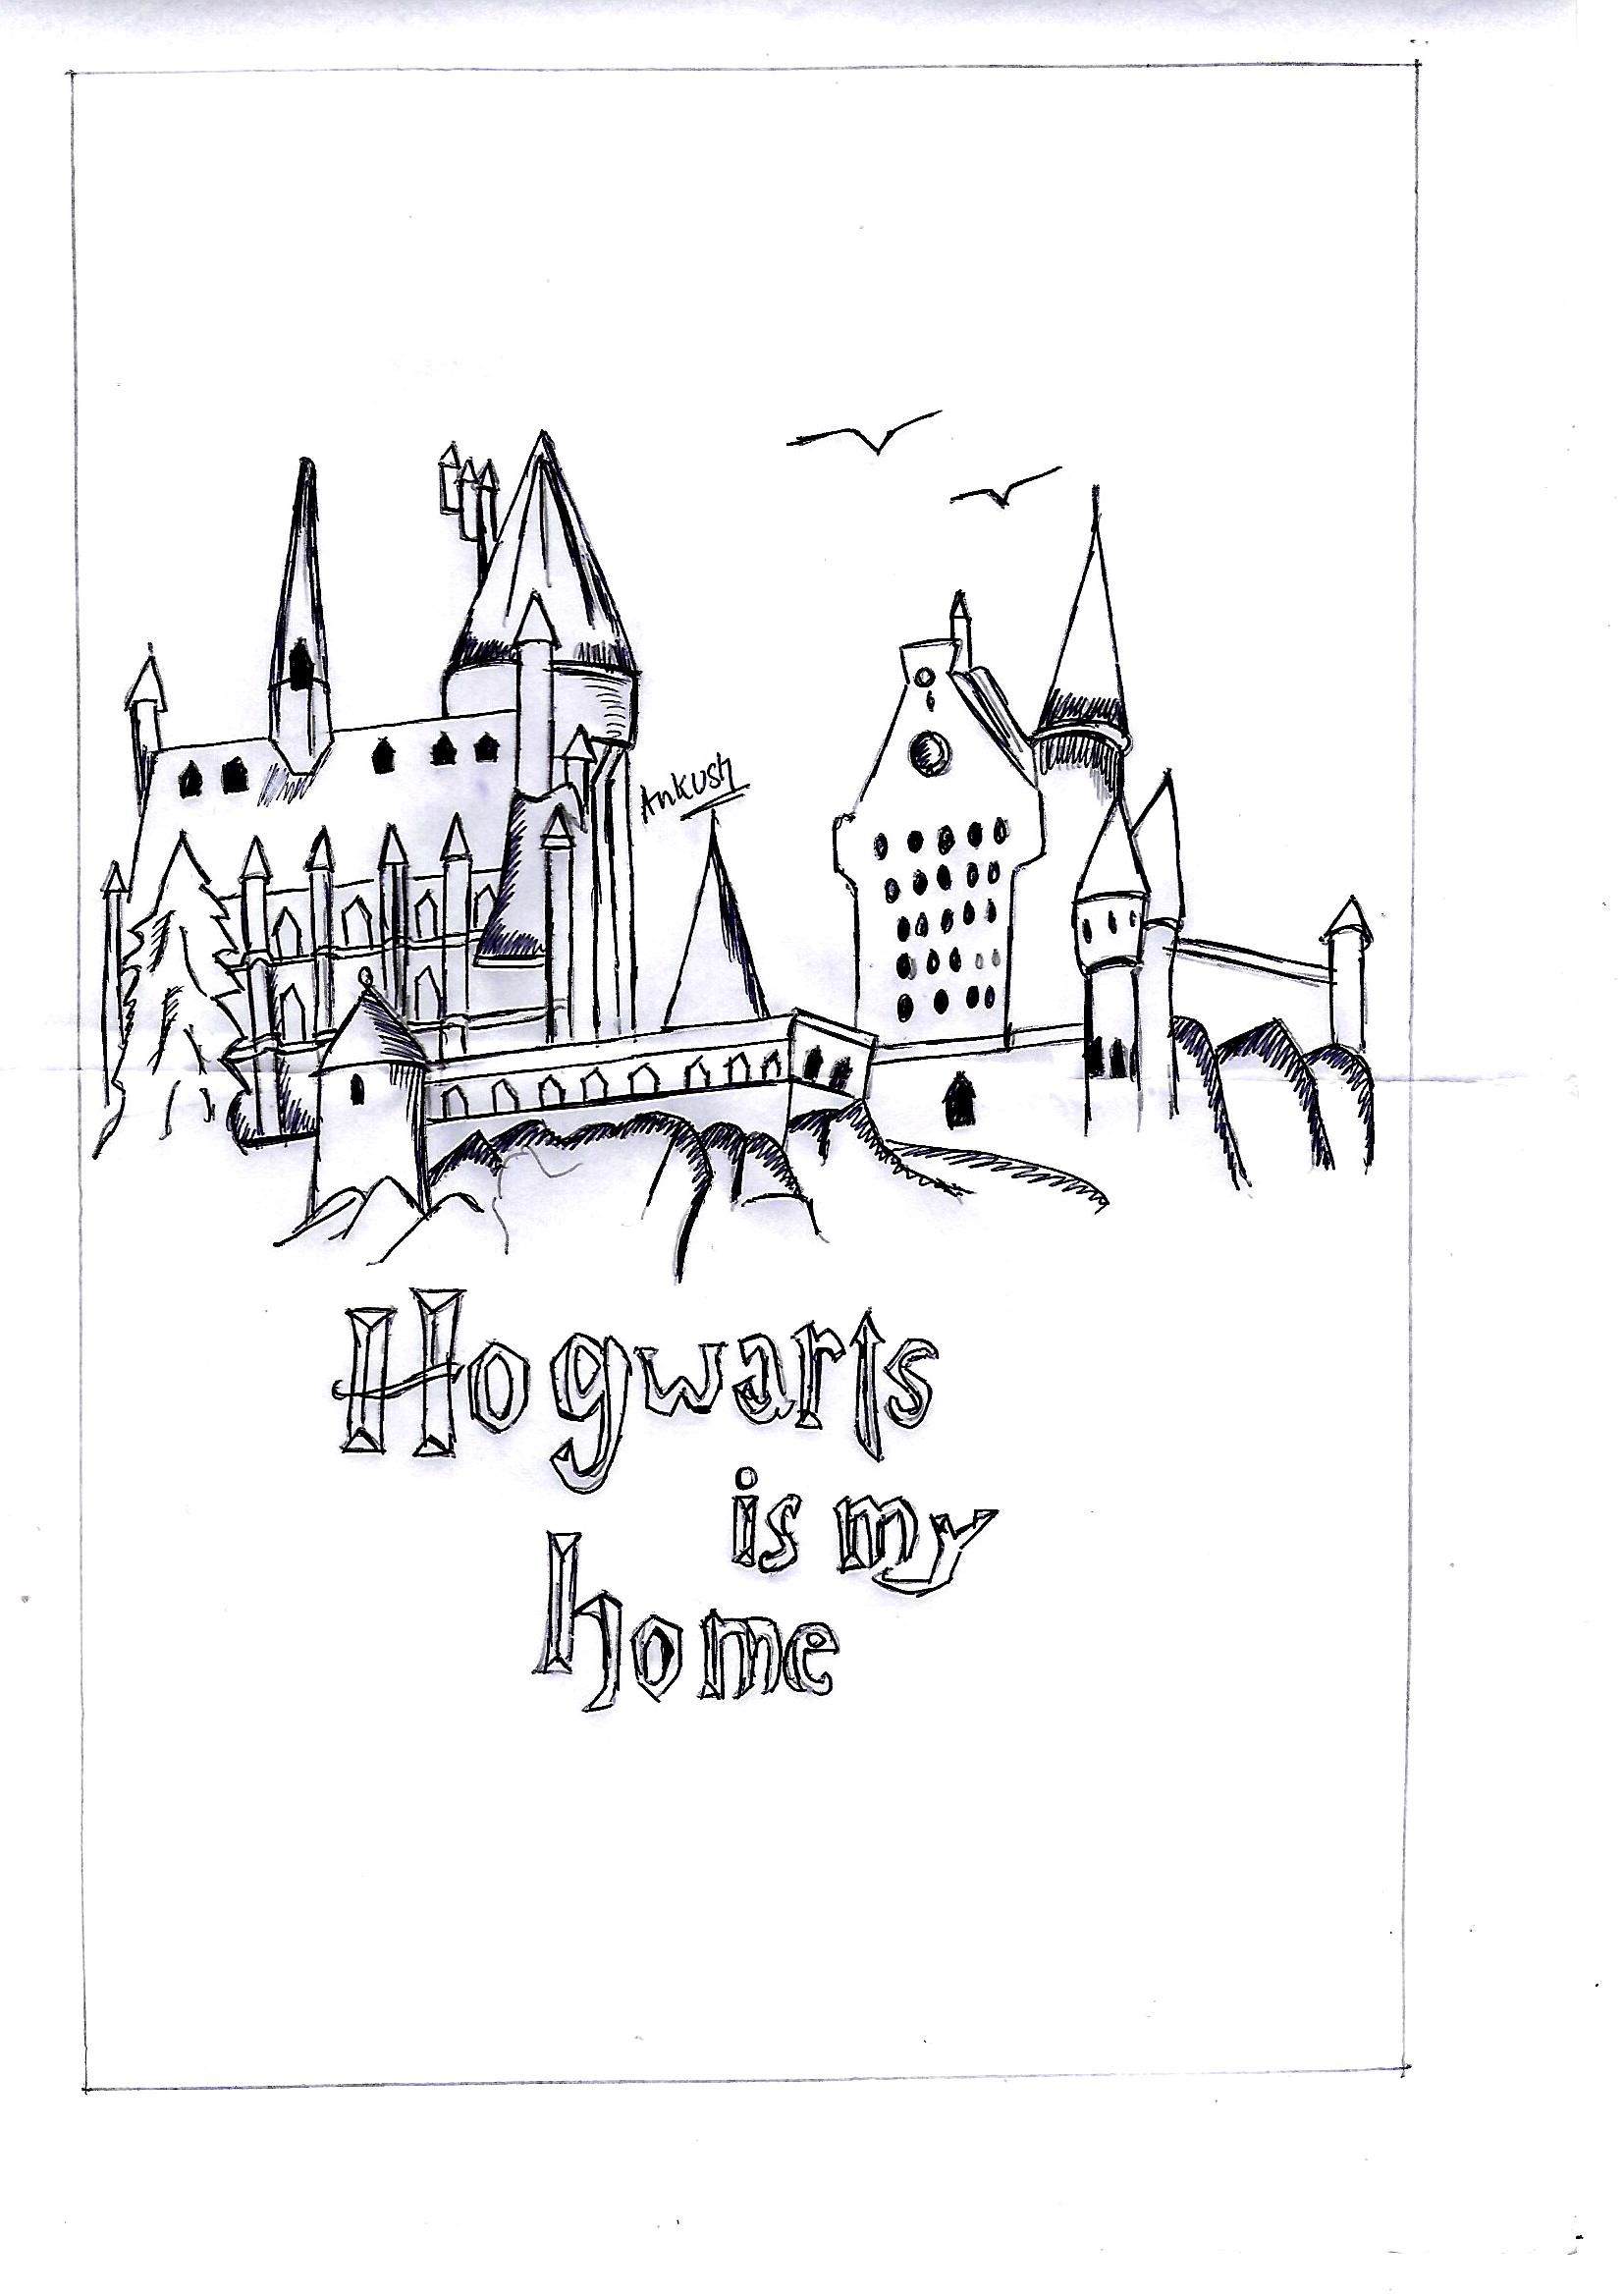 Ankush
Hogwarts
is my
home